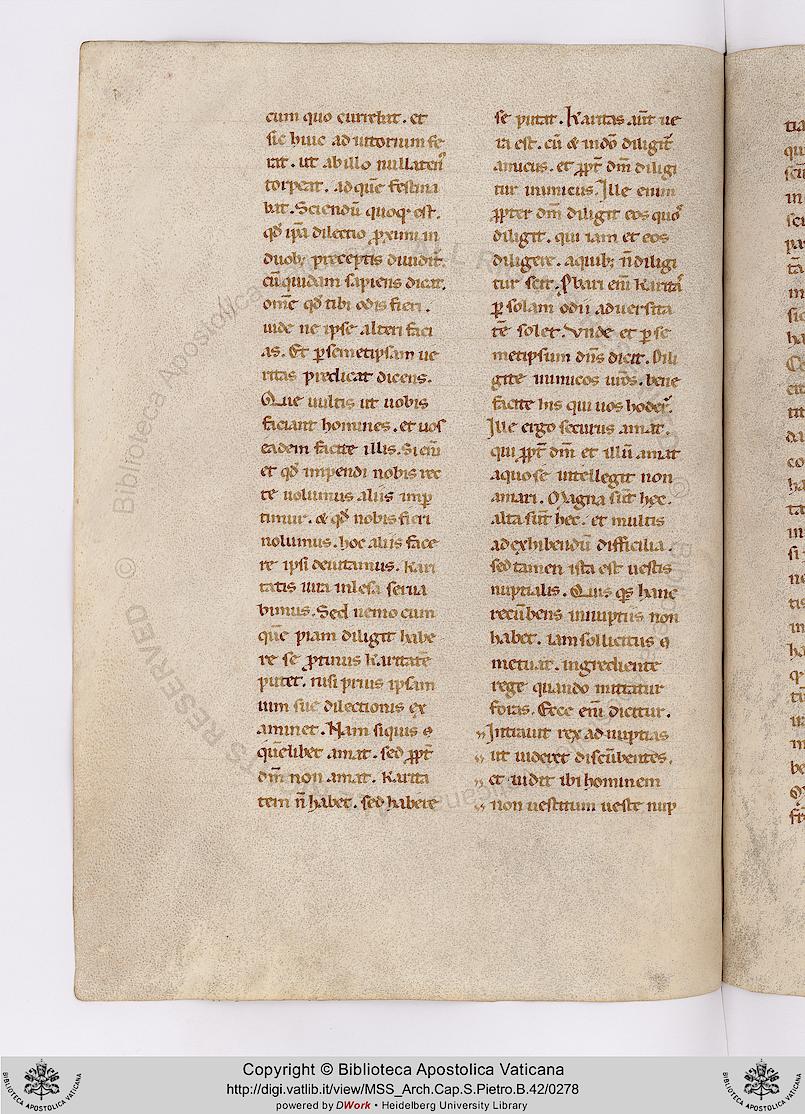 cum quo currebat. et
sic huic adiutorium fe
rat. ut ab illo nullaten᷒
torpeat. ad quē festina
bat. Sciendū quoq; est.
qd̄ ip̄a dilectio ꝓximi in
duob; preceptis diuidit᷑.
cū quidam sapiens dicat.
om̄e qd̄ tibi odis fieri.
uide ne ipse alteri faci
as. Et ꝑ semetipsam ue
ritas predicat dicens.
Que uultis ut uobis
faciant homines. et uos
eadem facite illis. Si eni᷒
et qd̄ impendi nobis rec
te uolumus aliis imꝑ
timur. & qd̄ nobis fieri
nolumus. hoc aliis face
re ipsi deuitamus. kari
tatis iura inlesa serua
bimus. Sed nemo cum
quē piam diligit habe
re se ꝓtinus karitatē
putet. nisi prius ipsam
uim sue dilectionis ex
aminet. Nam siquis
quēlibet amat. sed ꝓpt̄
dm̄ non amat. karita
tem n̄ habet. sed habere
se putat. Karitas aūt ue
ra est. cū & in dō diligit᷑
amicus. et ꝓpt̄ dm̄ diligi
tur inimicus. Ille enim
ꝓpter dm̄ diligit eos quos
diligit. qui iam et eos
diligere. a quib; n̄ diligi
tur scit. Ꝓbari eni᷒ karitas
ꝑ solam odii aduersita
tē solet. Vnde et ꝑ se
metipsum dn̄s dicit. Dili
gite inimicos uros. bene
facite his qui uos hoder̄.
Ille ergo securus amat.
qui ꝓpt̄ dm̄ et illū amat
a quo se intellegit non
amari. Magna sūt hec.
alta sūt hec. et multis
ad exhibendū difficilia.
sed tamen ista est uestis
nuptialis. Quis qs hanc
recūbens in nuptiis non
habet. iam sollicitus
metuat. ingrediente
rege quando mittatur
foras. Ecce eni᷒ dicitur.
Intrauit rex ad nuptias
ut uideret discūbentes.
et uidit ibi hominem
non uestitum ueste nup
Copyright © Biblioteca Apostolica Vaticana
http://digi.vatlib.it/view/MSS_Arch.Cap.S.Pietro.B.42/0278
powered by DWork • Heidelberg University Library